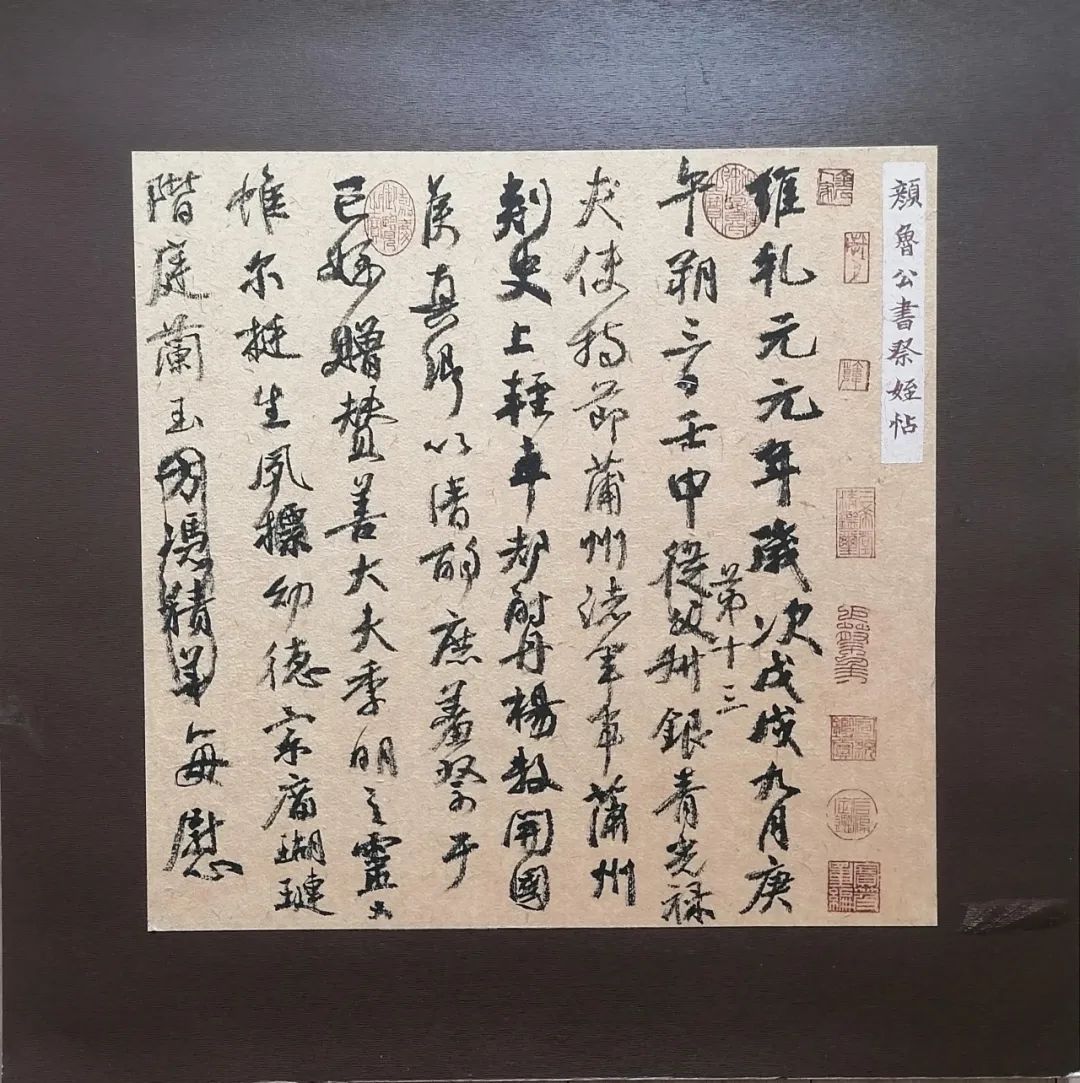 顏魯公書祭姪帖
維乹元元年歲次戊戌九月庚
午朔三日壬申從父叔銀青光祿
第十三
夫使持節蒲州諸軍事蒲州
刺史上輕車都尉丹楊縣開國
侯真卿以清酌庶羞祭于
亡姪贈贊善大夫季明之靈曰
惟尔挺生夙標幼德宗廟瑚璉
階庭蘭玉方憑積善每慰